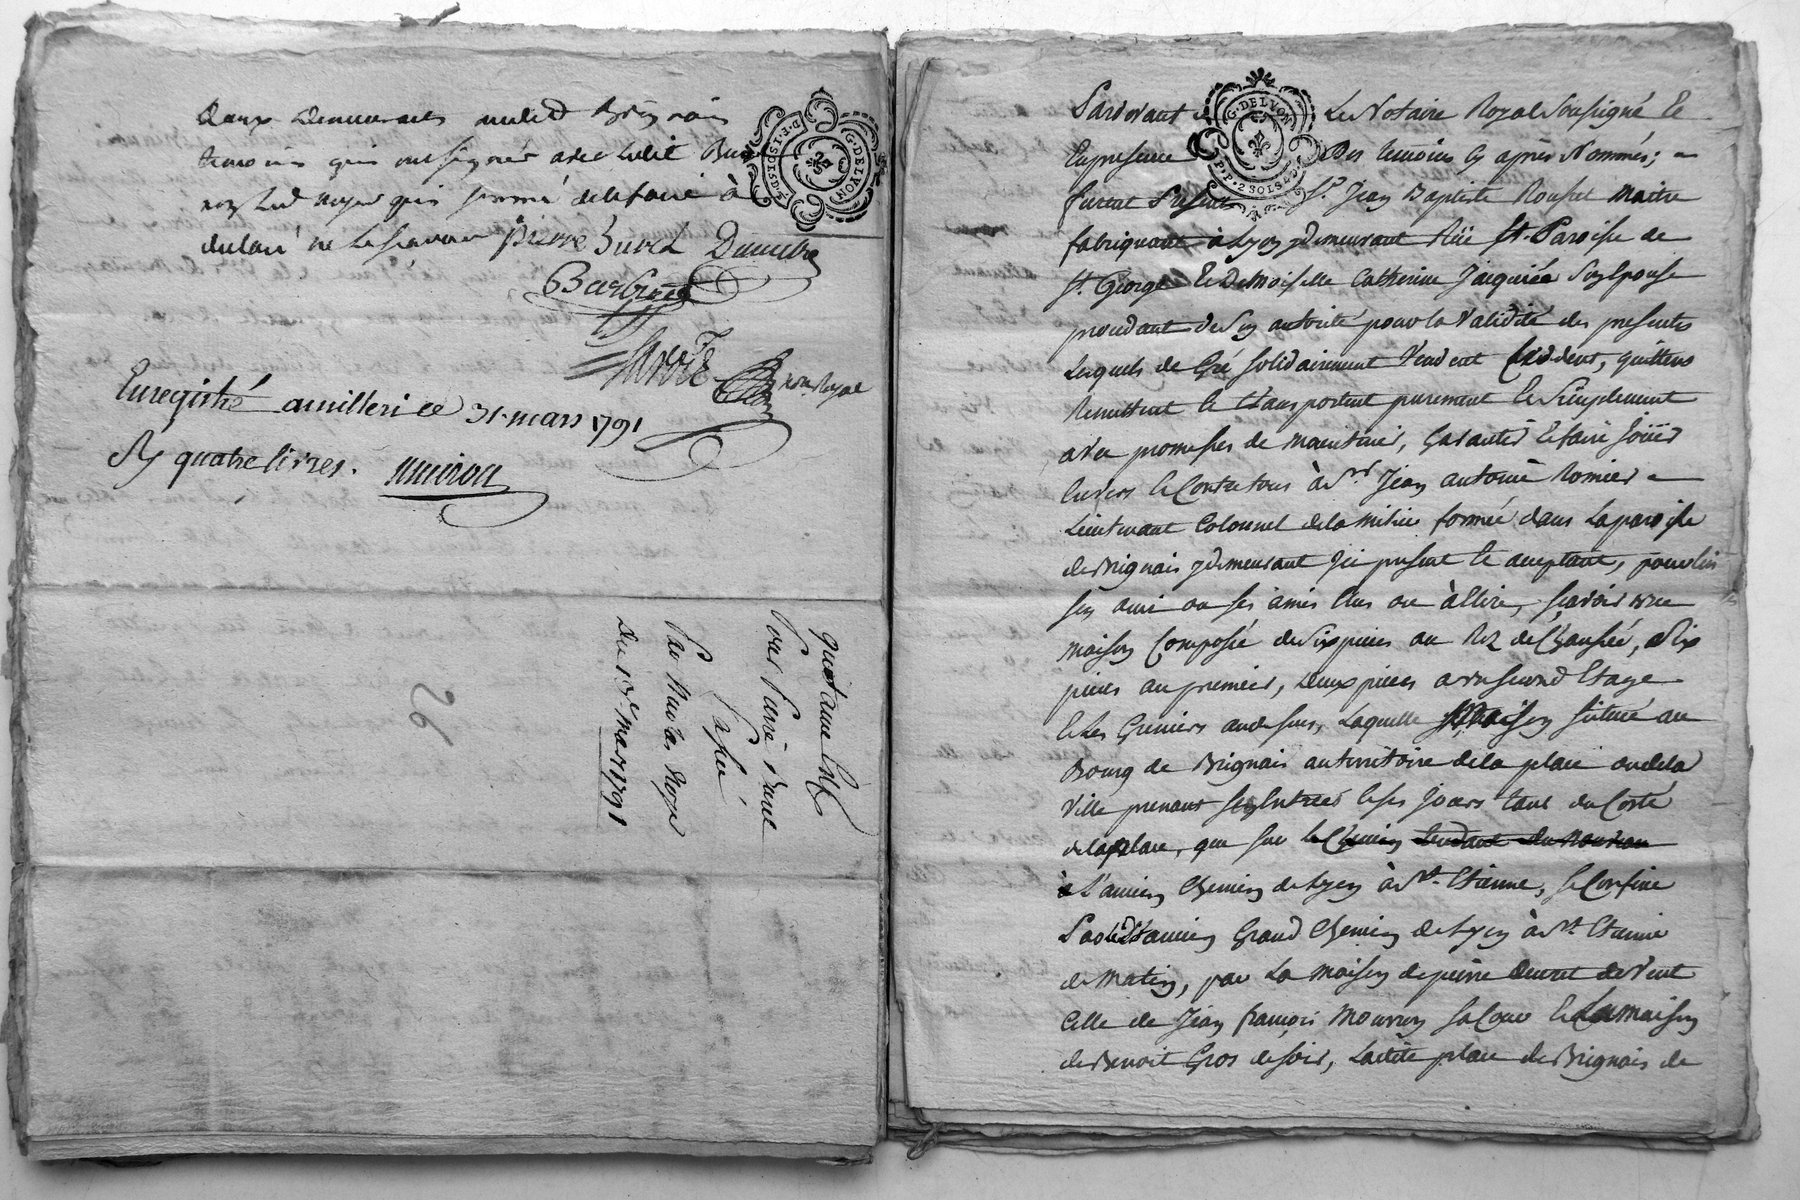 deux demeurants audit Brignais
temoins qui ont signés avec ledit
qui sommé de le faire à
declaré ne le sçavoir pierre burel Dumettre
Notre Royal
Enregistré a millerï ce 31. mars 1791
quatre livres.
G. DE LYON
quittance
Pour Pierre burel
Passeé
Par Nicolas
Du 13e Mars 1791
26
Pardevant Le Notaire Royal Soussigné Et
G. DE LYON
P. P. 2 SOLS 8 D.
En presence Des temoins Cy après Nommés;
furent Presents Sr. Jean Baptiste Rousset Maitre
fabriquant à Lyon y demeurant Rüe St. Paroisse de
St. George Et Demoiselle Catherine Jacquiée Son Epouse
procedant de Son autorité pour la Validité des presentes
Lesquels de Gré solidairement Vendent Cèdent, quittent
Remettent et transportent purement et Simplement
avec promesses de maintenir, Garantir et faire Joüir
Envers et Contre tous à Sr. Jean antoine Romier
Lieutenant Colonnel de la milice formée dans La paroisse
de Brignais y demeurant Ici present et acceptant, pour lui
son ami ou ses amis Elus ou à Elire, sçavoir une
maison Composée de Six pieces au Rez de Chaussée, Six
pieces au premier, deux pieces au second Etage
et Les Greniers au dessus, Laquelle Maison située au
Bourg de Brignais au territoire de la place ou de la
Ville prenant ses Entrées et ses Jours tant du Côté
de la place, que sur le Chemin tendant du
à L'ancien Chemin de Lyon à St. Etienne, se Confine
Par Ledit ancien Grand Chemin de Lyon à St. Etienne
de Matin, par La Maison de pierre de Vent
Celle de Jean françois Mouvron sa Cour et La maison
de Benoit Gros de Soir, Ladite place de Brignais de